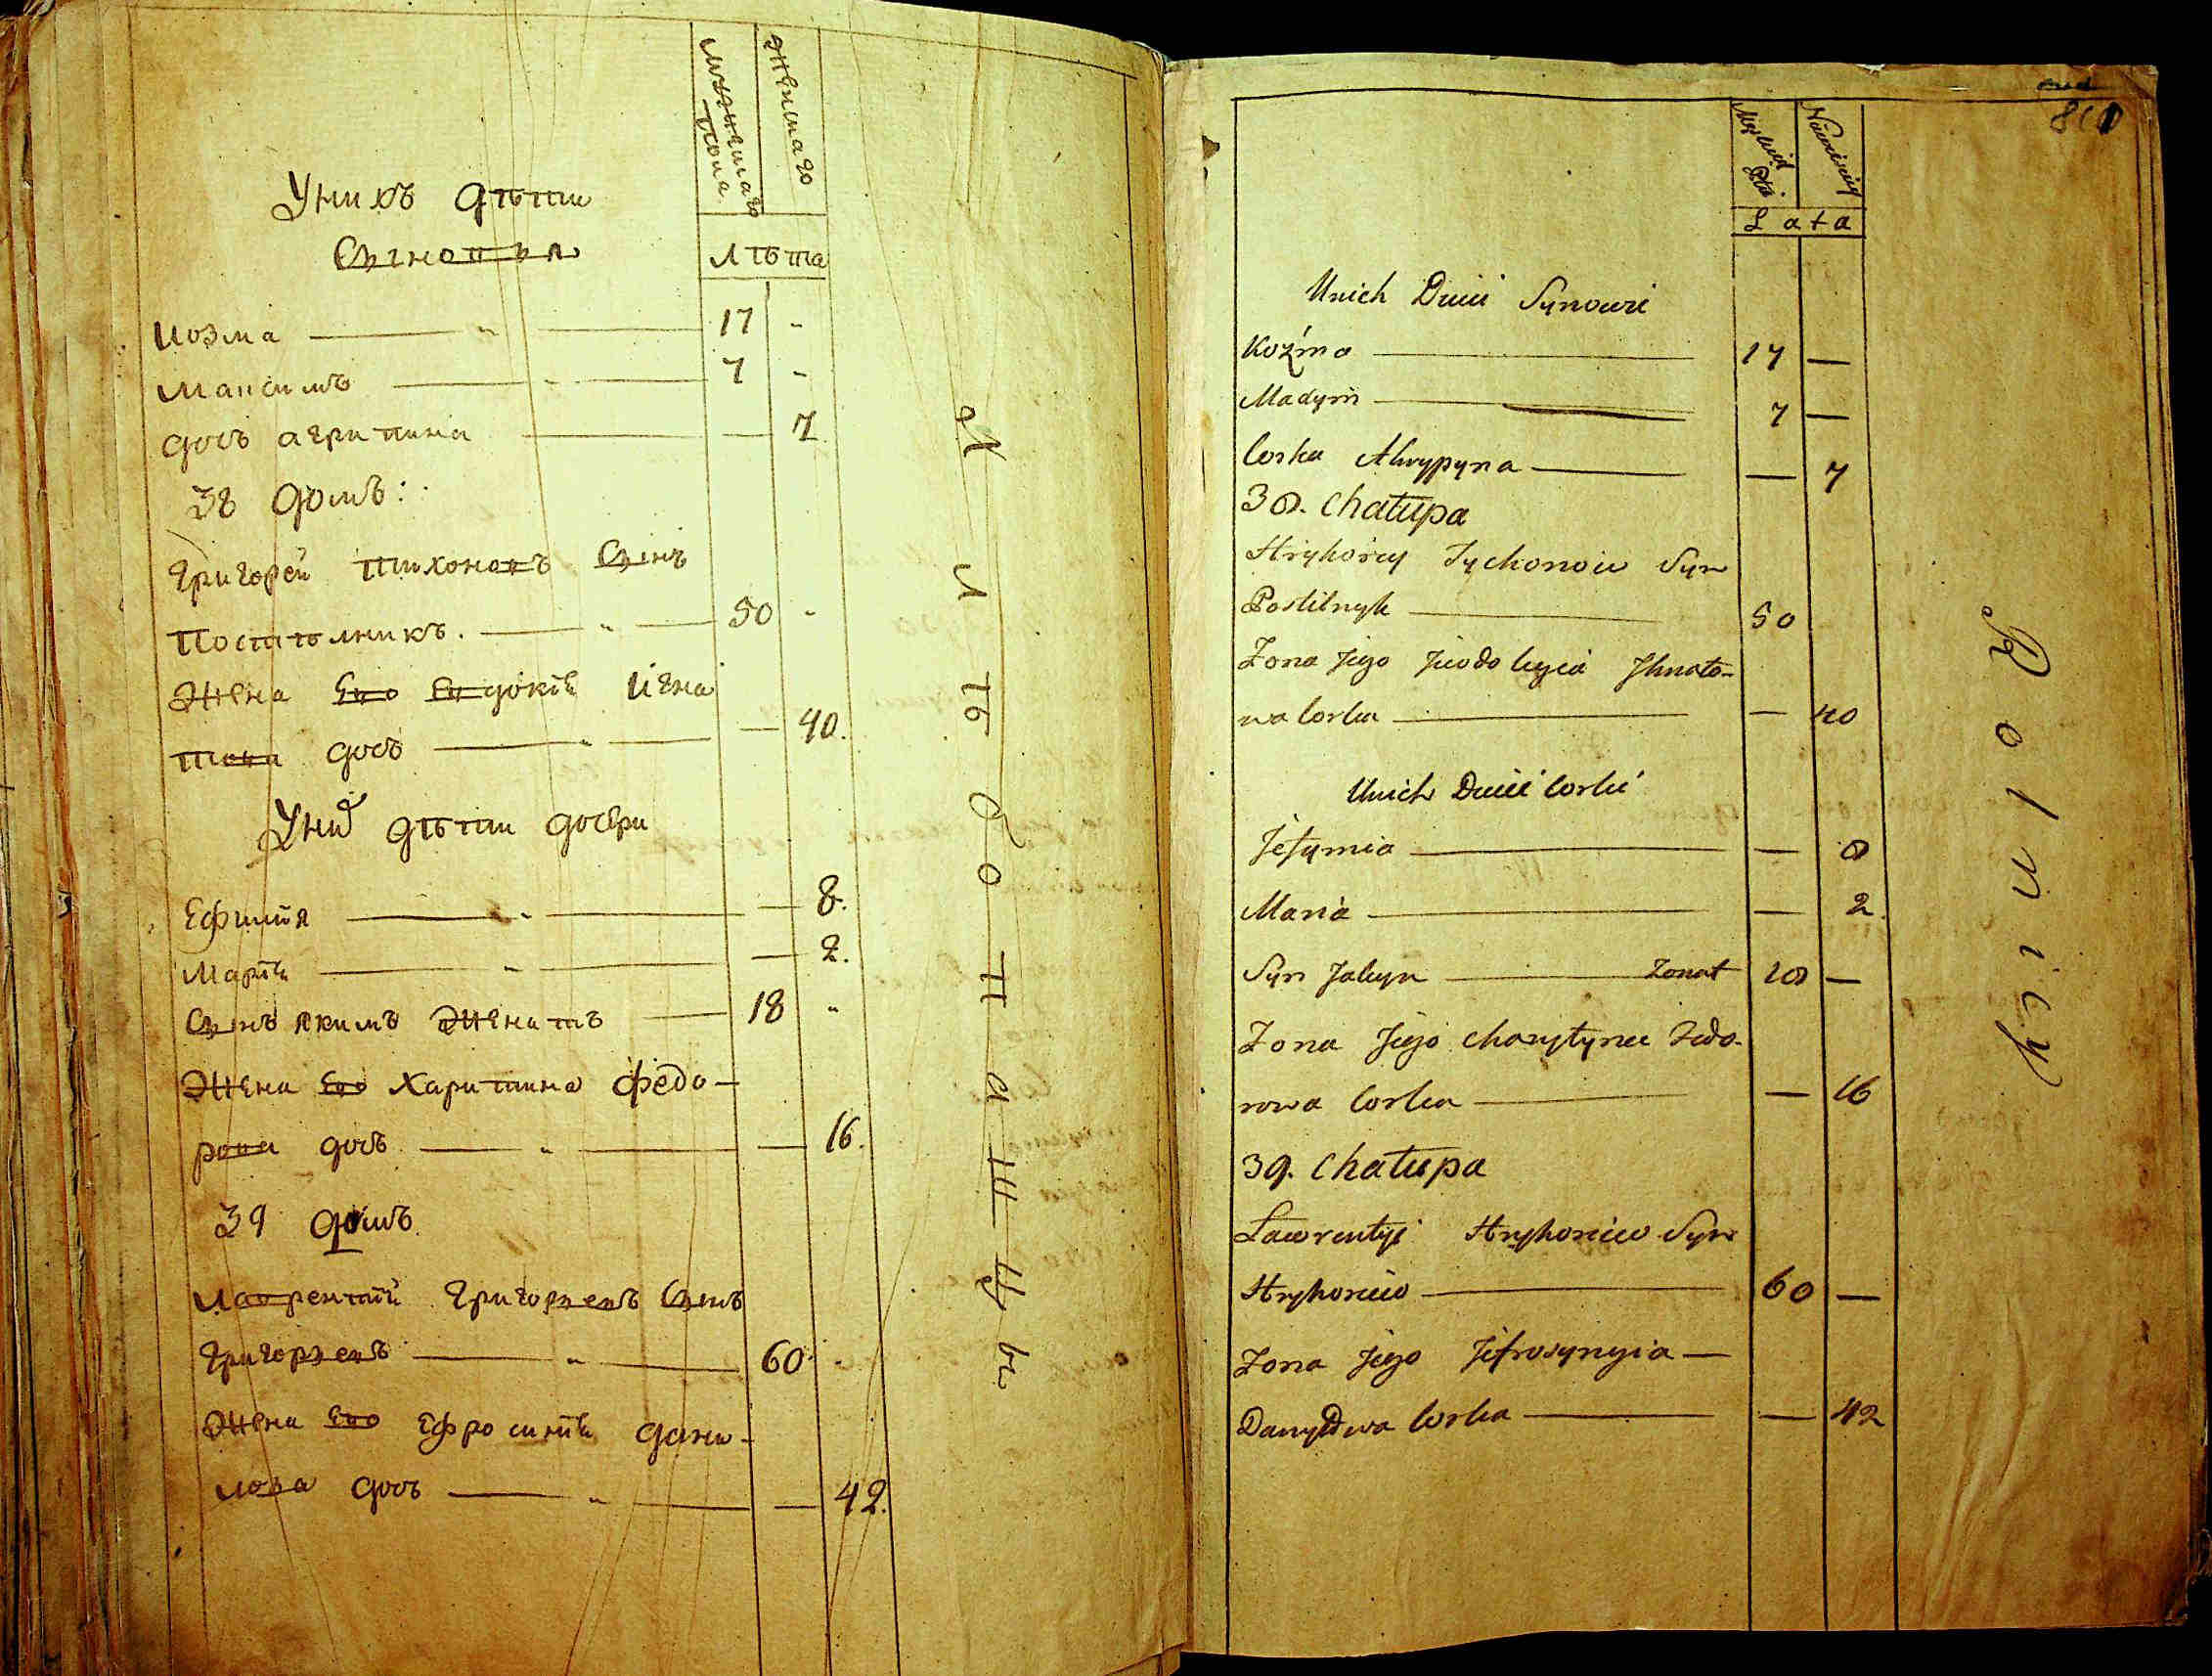 мужеска пола
женскаго
лѣта
У них дѣти
Сыновья
Козма — 17 -
Максимъ — 7 -
дочь агрипина — — 7
38 домъ:
Григорей Тихоновъ Сынъ
Постѣльникъ. — 50 -
Жена Его Евдокія Игна
това дочь — — 40.
У них дѣти дочери
Ефимия — — 8.
Марія — — 2.
Сынъ якимъ Женатъ — 18 "
Жена Его Харитина Федо-
рова дочь — — 16.
39 домъ
Лаврентій Григорьевъ Сынъ
Григорьевъ — 60 -
Жена Его Ефросинія Дани-
лова дочь — — 42.
Хлѣбопашцы
Lata
Unich Dzieci Synowie
Kozma — 17 —
Maxym — 7 —
Corka Ahrypyna — — 7
38. Chatupa
Hryhorey Tychonow Syn
Postilnyk — 50
Zona Jego Jewdokyia Jhnato-
wa Corka — — 40
Unich Dzieci Corki
Jefymia — — 8
Maria — — 2.
Syn Jakym — Zonat 18 —
Zona Jego Charytyna Fedo-
rowa Corka — — 16
39. Chatupa
Lawrentyi Hryhoriew Syn
Hryhoriew — 60 —
Zona Jego Jefrosynyia —
Danyłowa Corka — — 42
Rolnicy